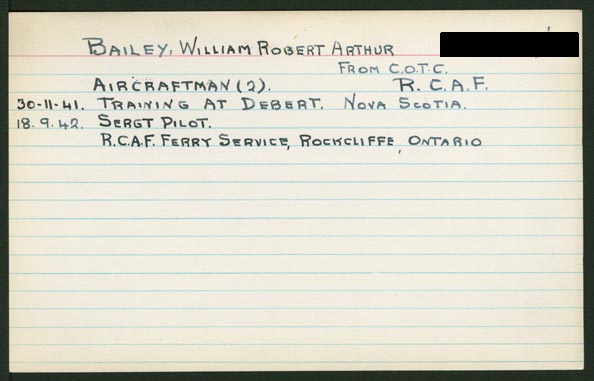 BAILEY, WILLIAM ROBERT ARTHUR
FROM C.O.T.C.
AIRCRAFTMAN (2). R.C.A.F.
30-11-41. TRAINING AT DEBERT. NOVA SCOTIA.
18.9.42. SERGT PILOT.
R.C.A.F. FERRY SERVICE, ROCKCLIFFE, ONTARIO